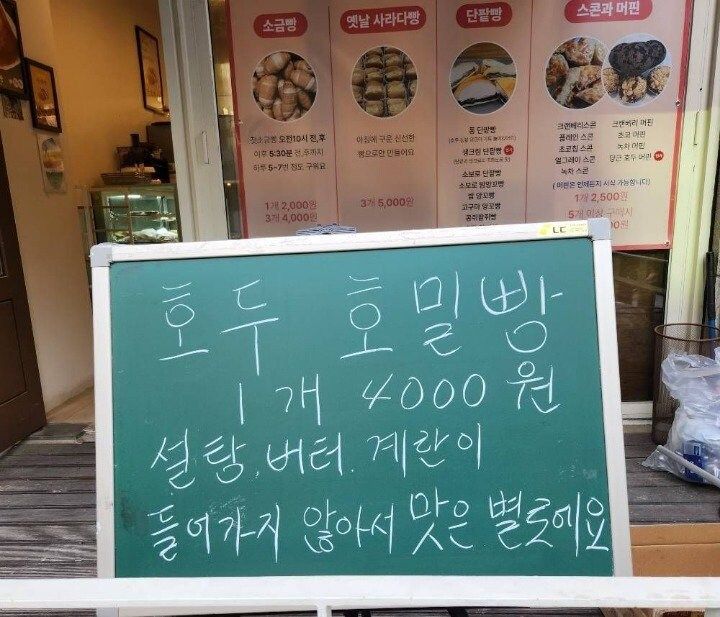 소금빵
옛날 사라다빵
단팥빵
스콘과 머핀
첫소금빵 오전10시 전,후
하루 5~7번 정도 구워요
1개 2,000원
3개 4,000원
아침에 구운 신선한
빵으로만 만들어요
3개 5,000원
통 단팥빵
생크림 단팥빵
소보로 단팥빵
밤 앙꼬빵
고구마 앙꼬빵
크랜베리스콘
플레인 스콘
초코칩 스콘
얼그레이 스콘
녹차 스콘
크랜베리 머핀
초코 머핀
녹차 머핀
당근 호두 머핀
(머핀은 언제든지 시식 가능합니다)
1개 2,500원
5개 이상 구매시
호두 호밀빵
1개 4000원
설탕, 버터. 계란이
들어가지 않아서 맛은 별로에요